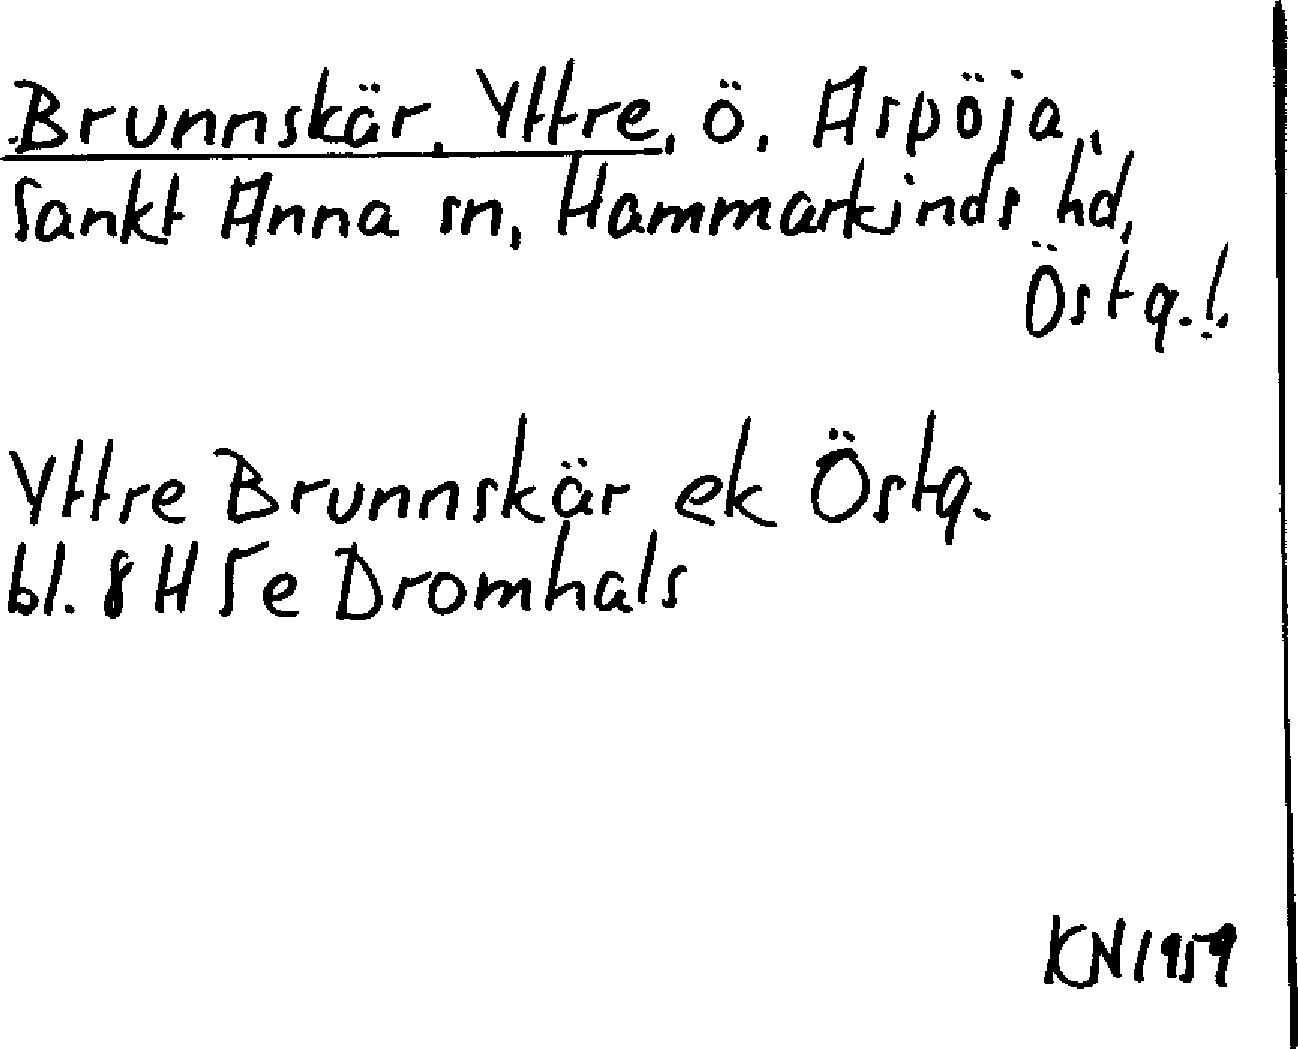 Brunnskär, Yttre, ö, Aspöja,
Sankt Anna sn, Hammarkinds hd,
Östg.!
Yttre Brunnskär ek Östg.
bl. 8 H 5e Dromhals
KN 1959